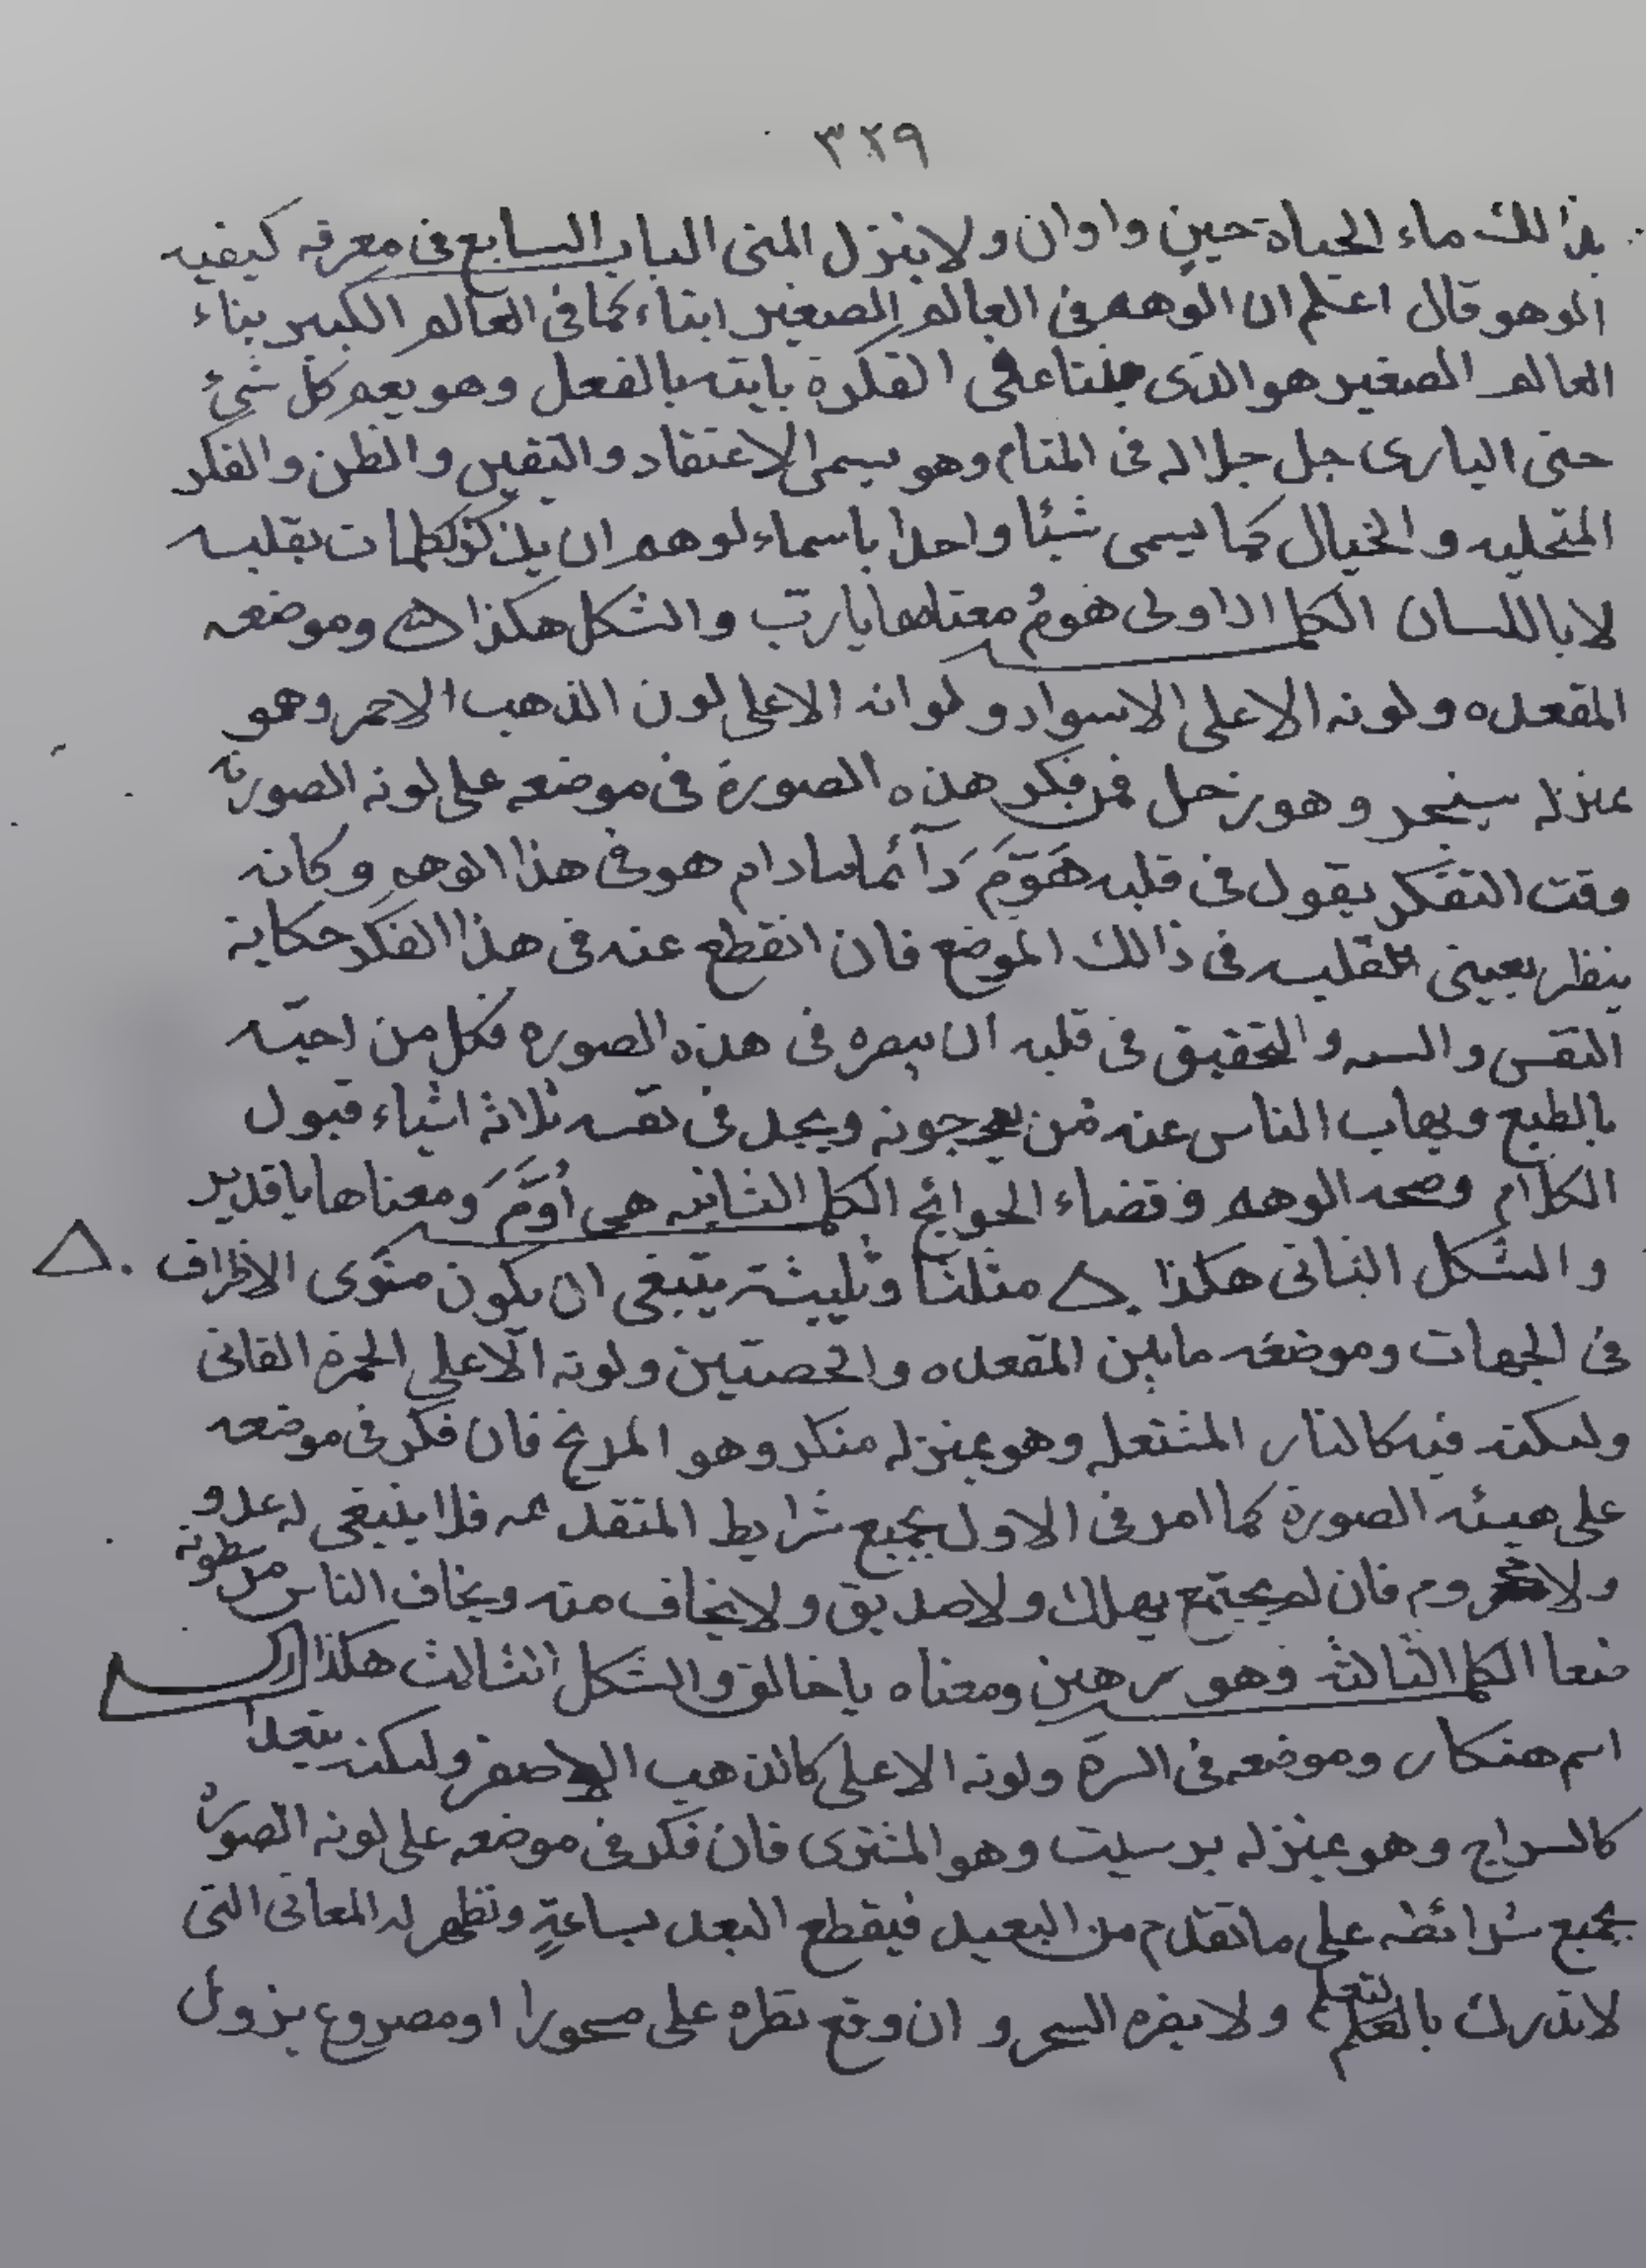 ٣٢٩
بذالك ماء الحياة حين واوان ولا ينزل المنى الباب السابع فى معرفه كيفيه
الوهو قال اعلم ان الوهم فى العالم الصغير ابناء كما فى العالم الكبير بناء
العالم الصغير هو الذى على الفكرة بايته بالفعل وهو يعم كل شئ
حتى البارى جل جلاله فى المنام وهو يسمى الاعتقاد واليقين والظن والفكر
المتحليه والخيال كما يسمى شيئا واحدا باسماء لوهم ان يذكر كلمات بقلبه
لا باللسان الكلمه الاولى هوم معناها يارب والشكل هكذا وموضعه
المقعده ولونه الاعلى الاسواد ولوانه الاعلى لون الذهب الاحمر وهو
بمنزله سينجر وهو زحل فمن فكر هذه الصورة فى موضعه على لونه الصورته
وقت التفكر يقول فى قلبه هَوّمَ دَآئما مادام هو فى هذا الوهم وكانه
ينظر بعينى القلبه فى ذالك الموضع فان انقطع عنه فى هذا الفكر حكاية
النفس والسه والتحقيق فى قلبه ان يبصره فى هذه الصوره فكل من احبّه
بالطبع ويهاب الناس عنه من ويجد فى نفسه ثلاثة اشياء قبول
الكلام وصحه الوهم وقضاء الحوائج الكلمه الثانيه هى اُوَّمَ ومعناها ياقدير
والشكل الثانى هكذا مثلثا وثليثة ينبغى ان يكون متوى الاطراف
فى الجهات وموضعه مابين المقعده والخصتين ولونه الاعلى الحمرة القانى
ولكنه فيه كالنار المشتعله وهو بمنزله منكر وهو المريخ فان فكر فى موضعه
على هيئه الصورة كما امر فى الاول بجميع شرايط المتقدمه فلا ينبغى له عدو
ولا فان لم يجتمع يهلك ولا صديق ولا يخاف منه ويخاف الناس من سطوته
منعا الكلمه الثالثه وهو رهين ومعناه ياخالق والشكل الثالث هكذا
اسم هنكار وموضعه فى السرة ولونه الاعلى كالذهب الاصفر ولكنه يتعدا
كالسراج وهو بمنزله برسيت وهو المشترى فان فكر فى موضعه على لونه الصوره
بجميع شرائطه على ماتقدم من البعيد فيقطع البعد بساعةٍ وتظهر له المعانى التى
لاتدرك بالتعلم ولا يضره السحر و ان وقع نظره على مسحورا او مصروع يزول